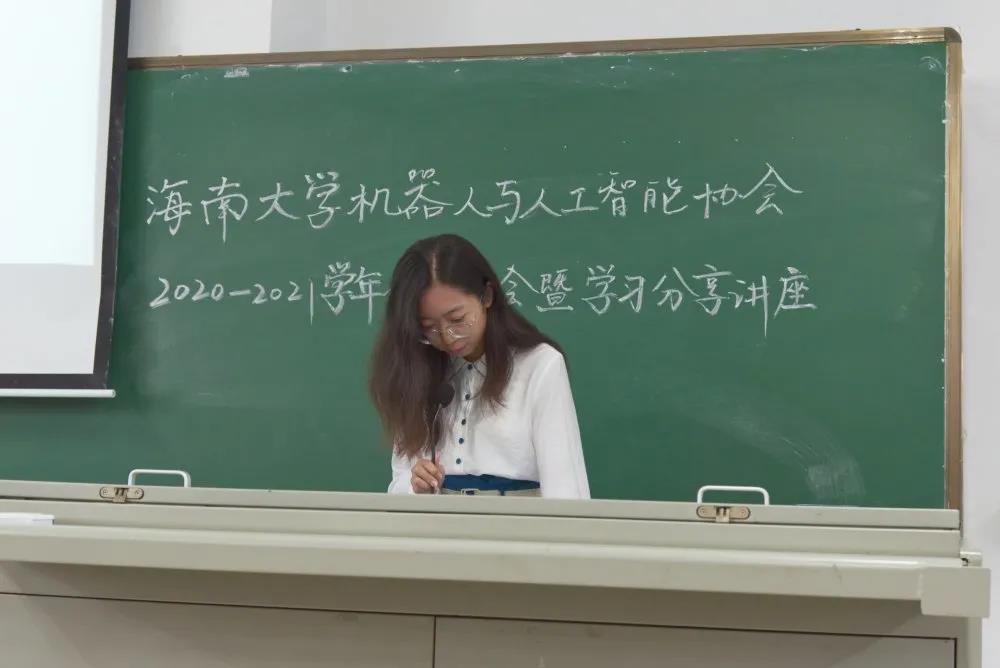 海南大学机器人与人工智能协会
2020-2021学年 会暨学习分享讲座